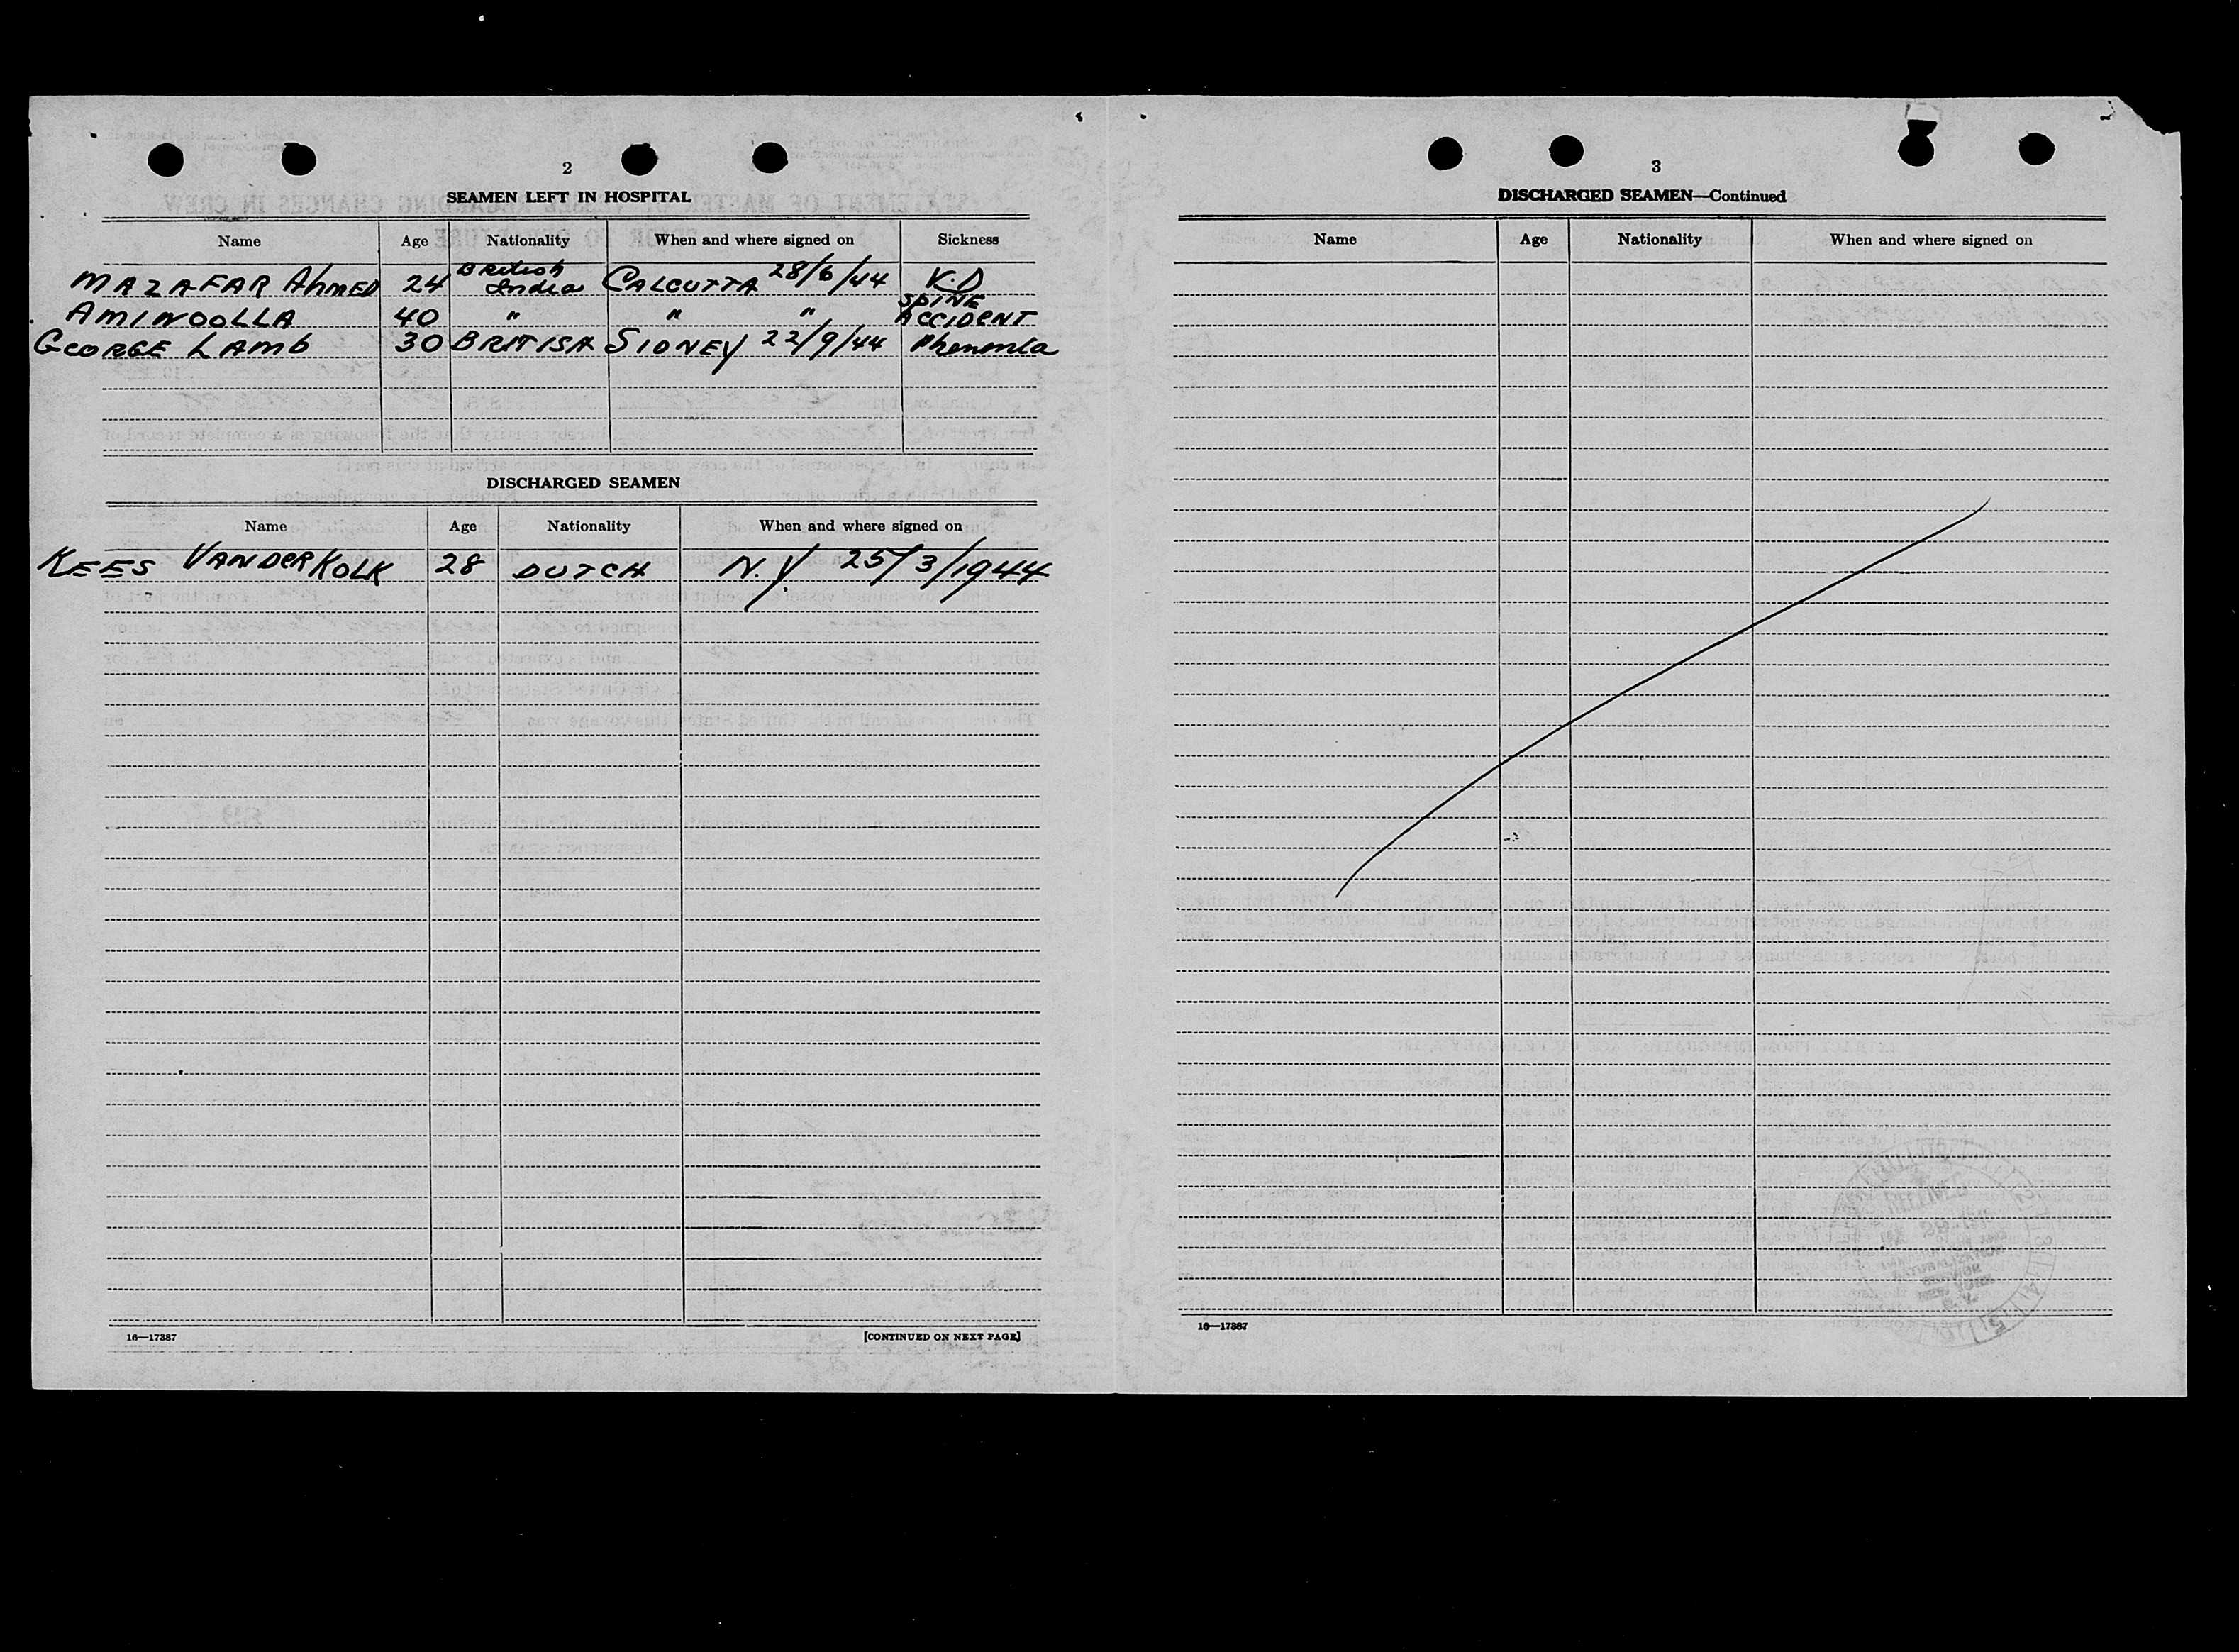 2
SEAMEN LEFT IN HOSPITAL
Name Age Nationality When and where signed on Sickness
MAZAFAR AhMED 24 British India CALCUTTA 28/6/44 V.D
AMINOOLLA 40 " " " SPINE ACCIDENT
GEORGE LAMB 30 BRITISH SIDNEY 22/9/44
DISCHARGED SEAMEN
Name Age Nationality When and where signed on
KEES VANDERKOLK 28 DUTCH N.Y. 25/3/1944
16—17387 [CONTINUED ON NEXT PAGE]
3
DISCHARGED SEAMEN—Continued
Name Age Nationality When and where signed on
16—17387